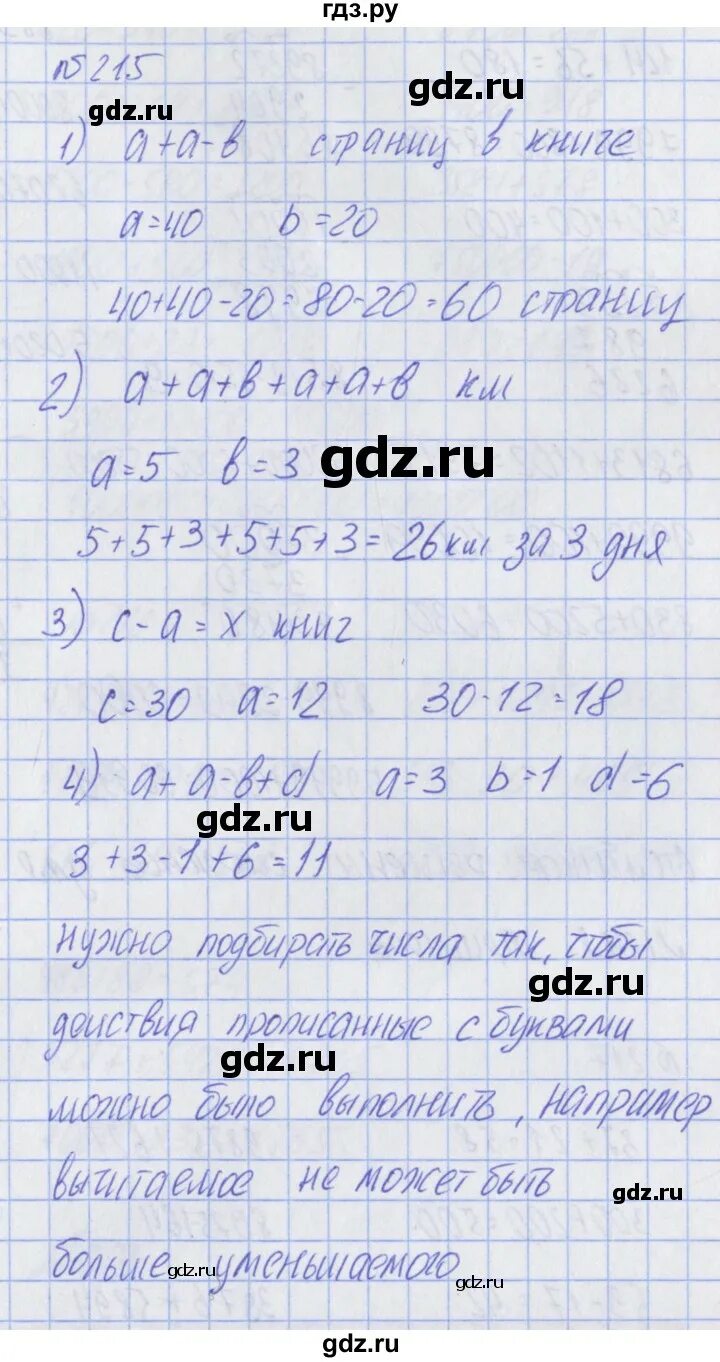 гдз.ру
№215
gdz.ru
gdz.ru
1) а+а-в страниц в книге
а=40 b=20
40+40-20=80-20=60 страниц
2) а+а+в+а+а+в км
gdz.ru
а=5 в=3
5+5+3+5+5+3=26км за 3 дня
3) с-а=х книг
с=30 а=12 30-12=18
4) а+а-в+d а=3 b=1 d=6
gdz.ru
3+3-1+6=11
нужно подбирать числа так, чтобы
gdz.ru
действия прописанные с буквами
gdz.ru
можно было выполнить, например
вычитаемое не может быть
gdz.ru
больше уменьшаемого
gdz.ru
gdz.ru
gdz.ru